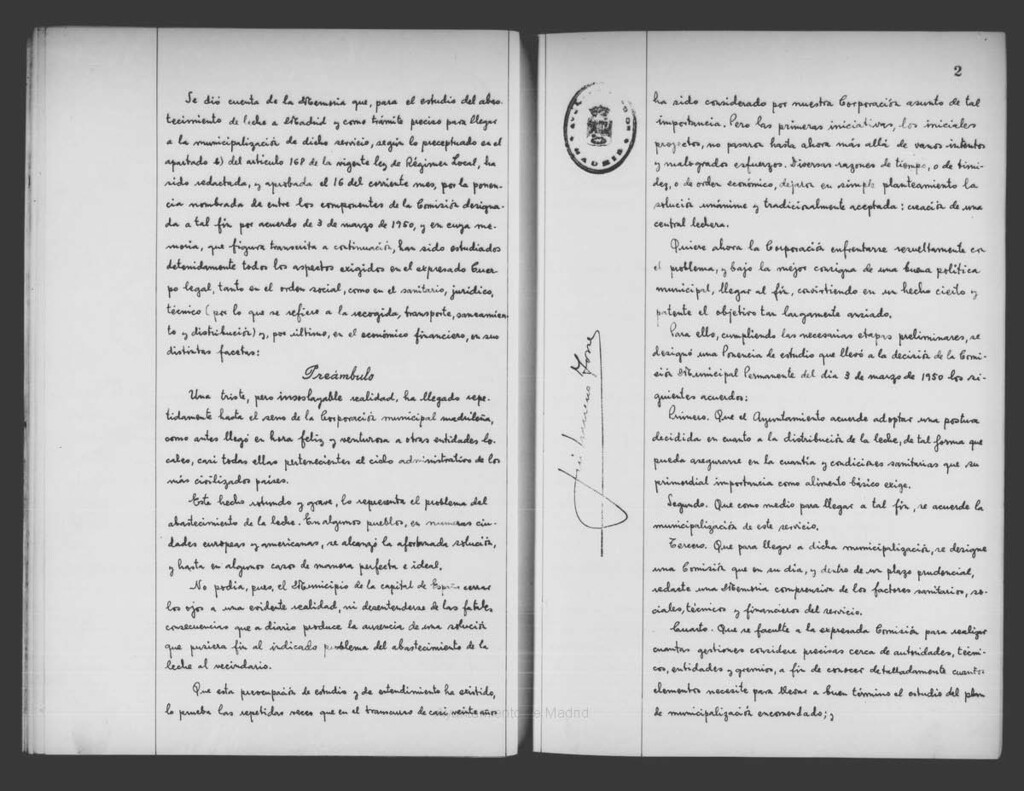 Se dió cuenta de la Memoria que, para el estudio del abas-
tecimiento de leche a Madrid y como trámite preciso para llegar
a la municipalización de dicho servicio, según lo preceptuado en el
apartado b) del artículo 168 de la vigente ley de Régimen Local, ha
sido redactada, y aprobada el 16 del corriente mes, por la ponen-
cia nombrada de entre los componentes de la Comisión designa-
da a tal fin por acuerdo de 3 de marzo de 1950, y en cuya me-
moria, que figura transcrita a continuación, han sido estudiados
detenidamente todos los aspectos exigidos en el expresado Cuer-
po legal, tanto en el orden social, como en el sanitario, jurídico,
técnico (por lo que se refiere a la recogida, transporte, saneamien-
to y distribución) y, por último, en el económico financiero, en sus
distintas facetas:
Preámbulo
Una triste, pero insoslayable realidad, ha llegado repe-
tidamente hasta el seno de la Corporación municipal madrileña,
como antes llegó en hora feliz y venturosa a otras entidades lo-
cales, casi todas ellas pertenecientes al ciclo administrativo de los
más civilizados países.
Este hecho rotundo y grave, lo representa el problema del
abastecimiento de la leche. En algunos pueblos, en numerosas ciu-
dades europeas y americanas, se alcanzó la afortunada solución,
y hasta en algunos casos de manera perfecta e ideal.
No podía, pues, el Municipio de la capital de España cerrar
los ojos a una evidente realidad, ni desentenderse de las fatales
consecuencias que a diario produce la ausencia de una solución
que pusiera fin al indicado problema del abastecimiento de la
leche al vecindario.
Que esta preocupación de estudio y de entendimiento ha existido,
lo prueba las repetidas veces que en el transcurso de casi veinte años
Ayuntamiento de Madrid
2
MADRID
ha sido considerado por nuestra Corporación asunto de tal
importancia. Pero las primeras iniciativas, los iniciales
proyectos, no pasaron hasta ahora más allá de vanos intentos
y malogrados esfuerzos. Diversas razones de tiempo, o de timi-
dez, o de orden económico, dejaron en simple planteamiento la
solución unánime y tradicionalmente aceptada: creación de una
central lechera.
Quiere ahora la Corporación enfrentarse resueltamente con
el problema, y bajo la mejor consigna de una buena política
municipal, llegar al fin, convirtiendo en un hecho cierto y
patente el objetivo tan largamente ansiado.
Para ello, cumpliendo las necesarias etapas preliminares, se
designó una Ponencia de estudio que llevó a la decisión de la Comi-
sión Municipal Permanente del día 3 de marzo de 1950 los si-
guientes acuerdos:
Primero. Que el Ayuntamiento acuerde adoptar una postura
decidida en cuanto a la distribución de la leche, de tal forma que
pueda asegurarse en la cuantía y condiciones sanitarias que su
primordial importancia como alimento básico exige.
Segundo. Que como medio para llegar a tal fin, se acuerde la
municipalización de este servicio.
Tercero. Que para llegar a dicha municipalización, se designe
una Comisión que en su día, y dentro de un plazo prudencial,
redacte una Memoria comprensiva de los factores sanitarios, so-
ciales, técnicos y financieros del servicio.
Cuarto. Que se faculte a la expresada Comisión para realizar
cuantas gestiones considere precisas cerca de autoridades, técni-
cos, entidades y gremios, a fin de conocer detalladamente cuantos
elementos necesite para llevar a buen término el estudio del plan
de municipalización encomendado; y